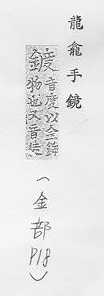 龍龕手鏡
鍍
音度以金飾
物也又音徒
(金部P18)